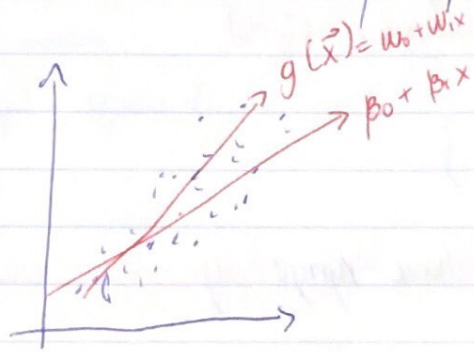 g(x⃗) = w₀ + w₁x
β₀ + β₁x